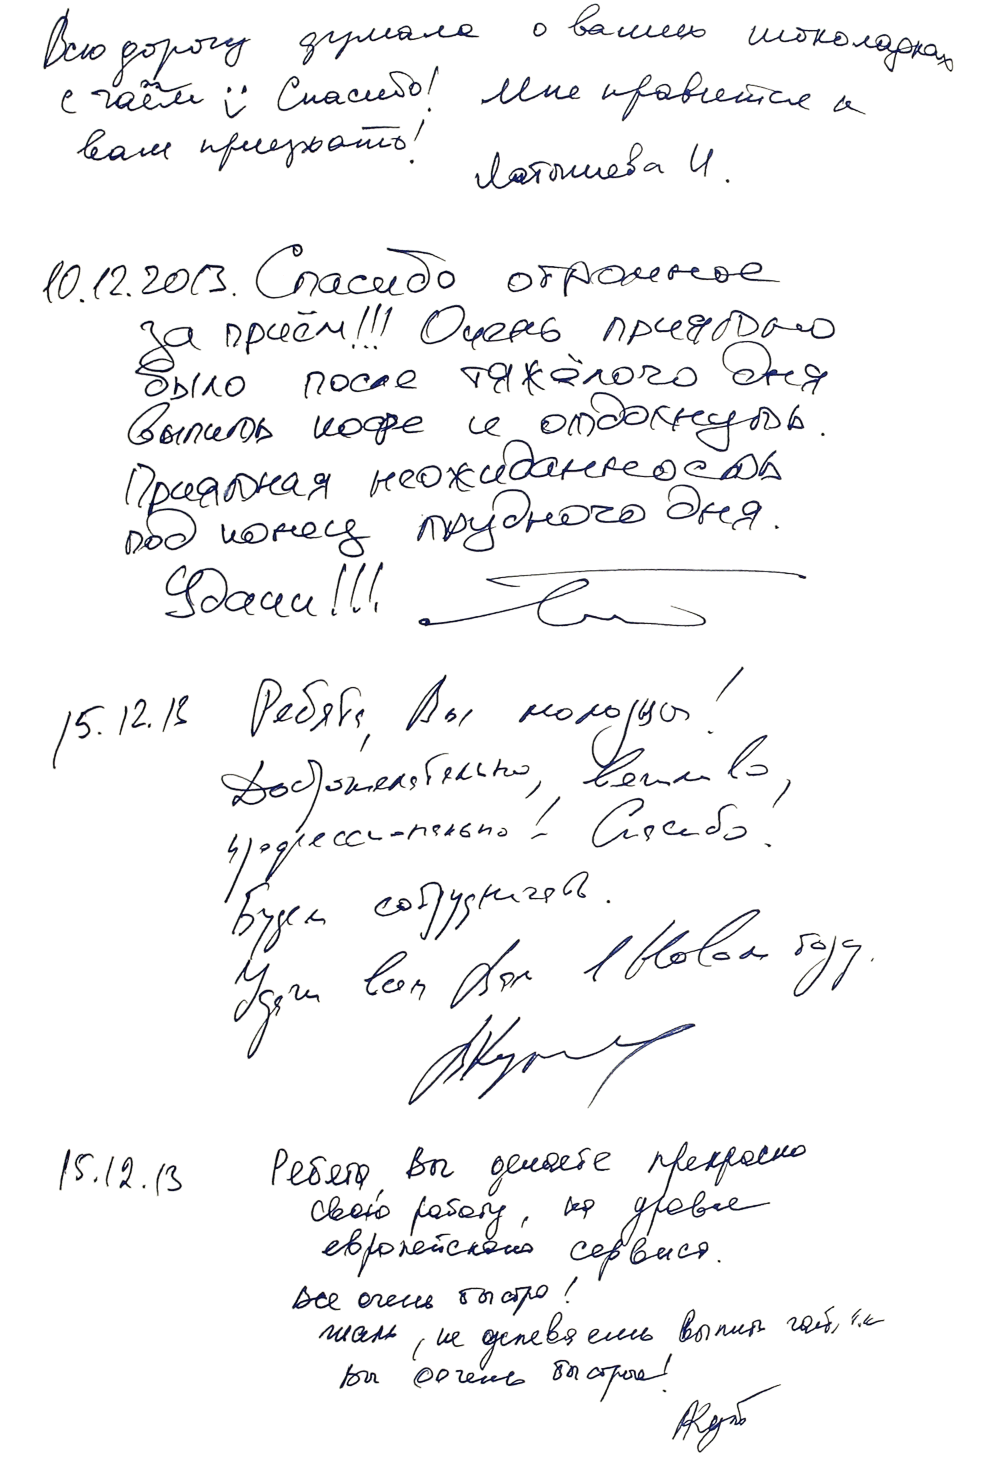 Всю дорогу думала о ваших шоколадках
с чаем Спасибо! Мне нравится к
вам приезжать!
Латышева И.
10.12.2013. Спасибо огромное
за приём!!! Очень приятно
было после тяжёлого дня
выпить кофе и отдохнуть.
Приятная неожиданность
под конец трудного дня.
Удачи!!!
15.12.13 Ребята, Вы молодцы!
Доброжелательно, вежливо,
профессионально! Спасибо!
Будем сотрудничать.
Удачи Вам в Новом году.
15.12.13 Ребята, Вы делаете прекрасно
свою работу, на уровне
европейского сервиса.
Все очень быстро!
жаль, не успеваешь выпить чай, т.к
Вы оочень быстрые!